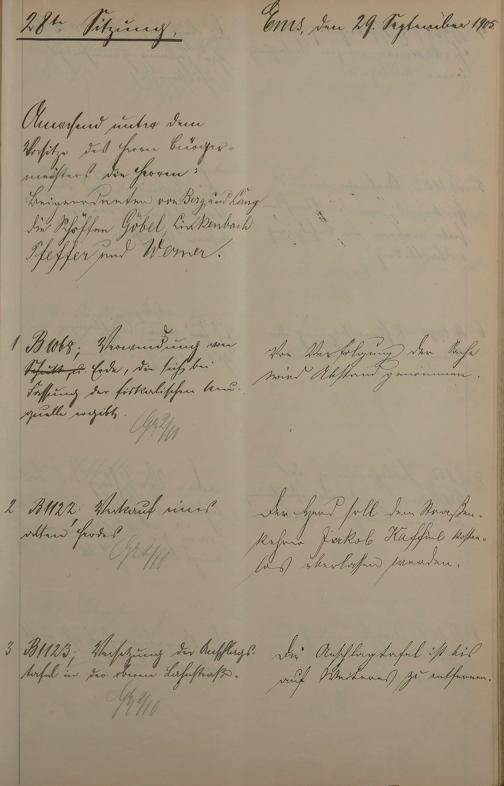 28te Sitzung.
Ems, den 29. September 1905
Anwesend unter dem
Vorsitze des Herrn Bürger-
meisters die Herren:
Beigeordneten von Berg und Lang
die Schöffen Göbel, Linkenbach
Pfeffer und Werner.
1 B1068; Verwendung von
Schutt u. Erde, die sich bei
Fassung der fiskalischen
quelle ergibt.
Von Verfolgung der Sache
wird Abstand genommen.
2 B1122. Verkauf eines
alten Herdes
Der Herd soll dem Straßen-
kehrer Jakob kosten-
los überlassen werden.
3 B1123; Versetzung der Anschlags-
tafel in der oberen Lahnstraße.
Die Anschlagtafel ist bis
auf Weiteres zu entfernen.